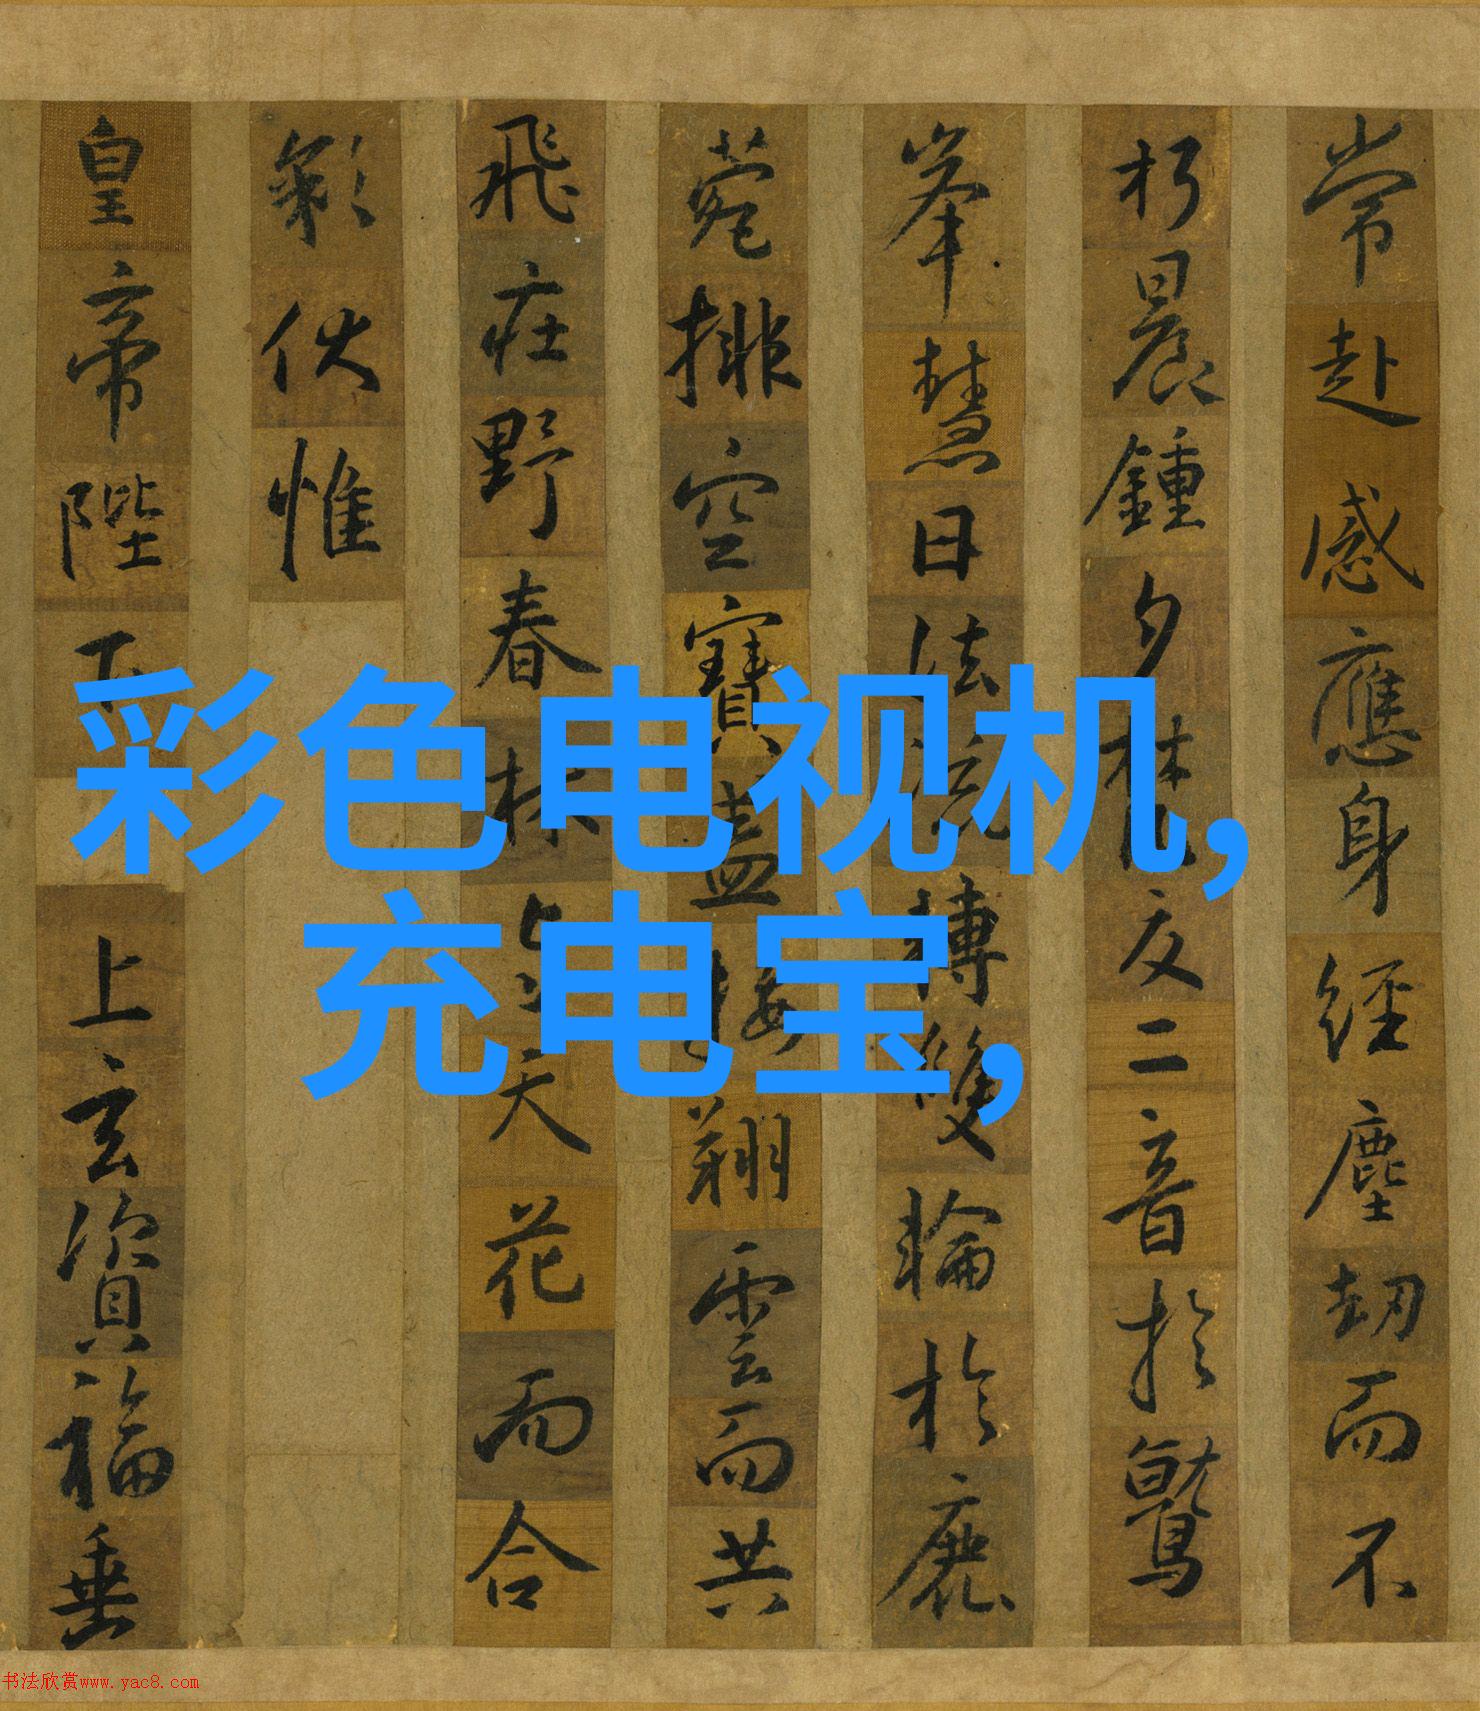 彩色电视机,
充电宝,
常赴感應身經塵劫而不
朽晨鍾夕梵交二音於鷲
峯慧日法流轉雙輪於鹿
菀排空寶蓋接翔雲而共
飛庄野春林与天花而合
彩伏惟
皇帝陛下上玄資福垂
书法欣赏www.yac8.com